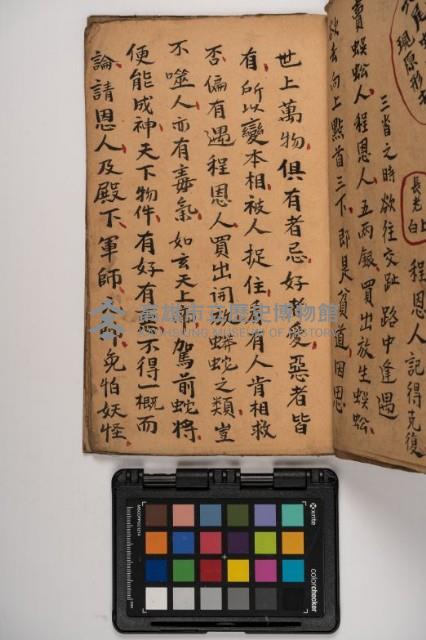 賣蜈蚣人程恩人五兩銀買出放生蜈蚣
去向上點首三下即是貧道因思
三當之時欲往交趾路中逢遇
長老上白
程恩人記得克復
現原形
世上萬物俱有者忌好者愛惡者皆
有所以變本相被人捉住有人肯相救
否偏有遇程恩人買出詞蟒蛇之類豈
不噬人亦有毒氣如玄天上駕前蛇將
便能成神天下物件有好有惡不得一概而
論請恩人及殿下軍師免怕妖怪
高雄市立歷史博物館
KAOHSIUNG MUSEUM OF HISTORY
x-rite
colorchecker